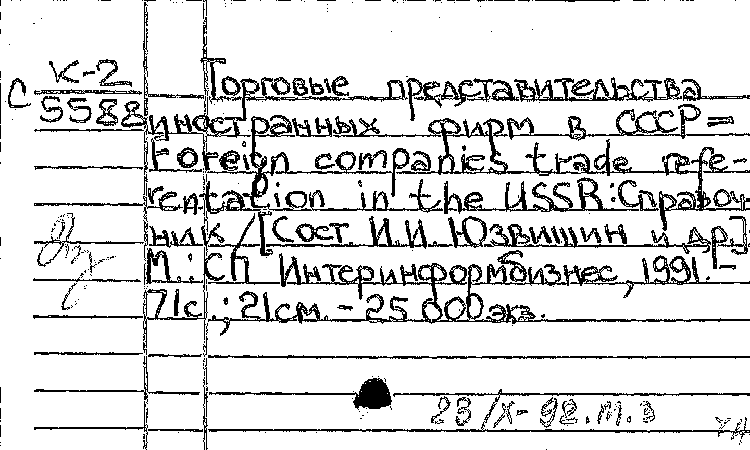 С К-2
5588
Торговые представительства
иностранных фирм в СССР =
Foreign companies trade refe-
rentation in the USSR: Справоч-
ник / [Сост И.И. Юзвишин и др.]
М.: СП Интеринформбизнес, 1991. -
71с.; 21см. - 25 000 экз.
23/X-92.м.з